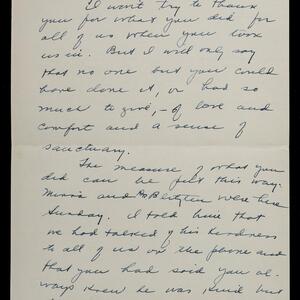 I won't try to thank
you for what you did for
all of us when you took
us in. But I will only say
that no one but you could
have done it, or had so
much to give, – of love and
comfort and a sense of
sanctuary.
The measure of what you
did can be felt this way.
and were here
Sunday. I told him that
we had talked of his kindness
to all of us on the phone and
that you had said you al-
ways knew he was kind but